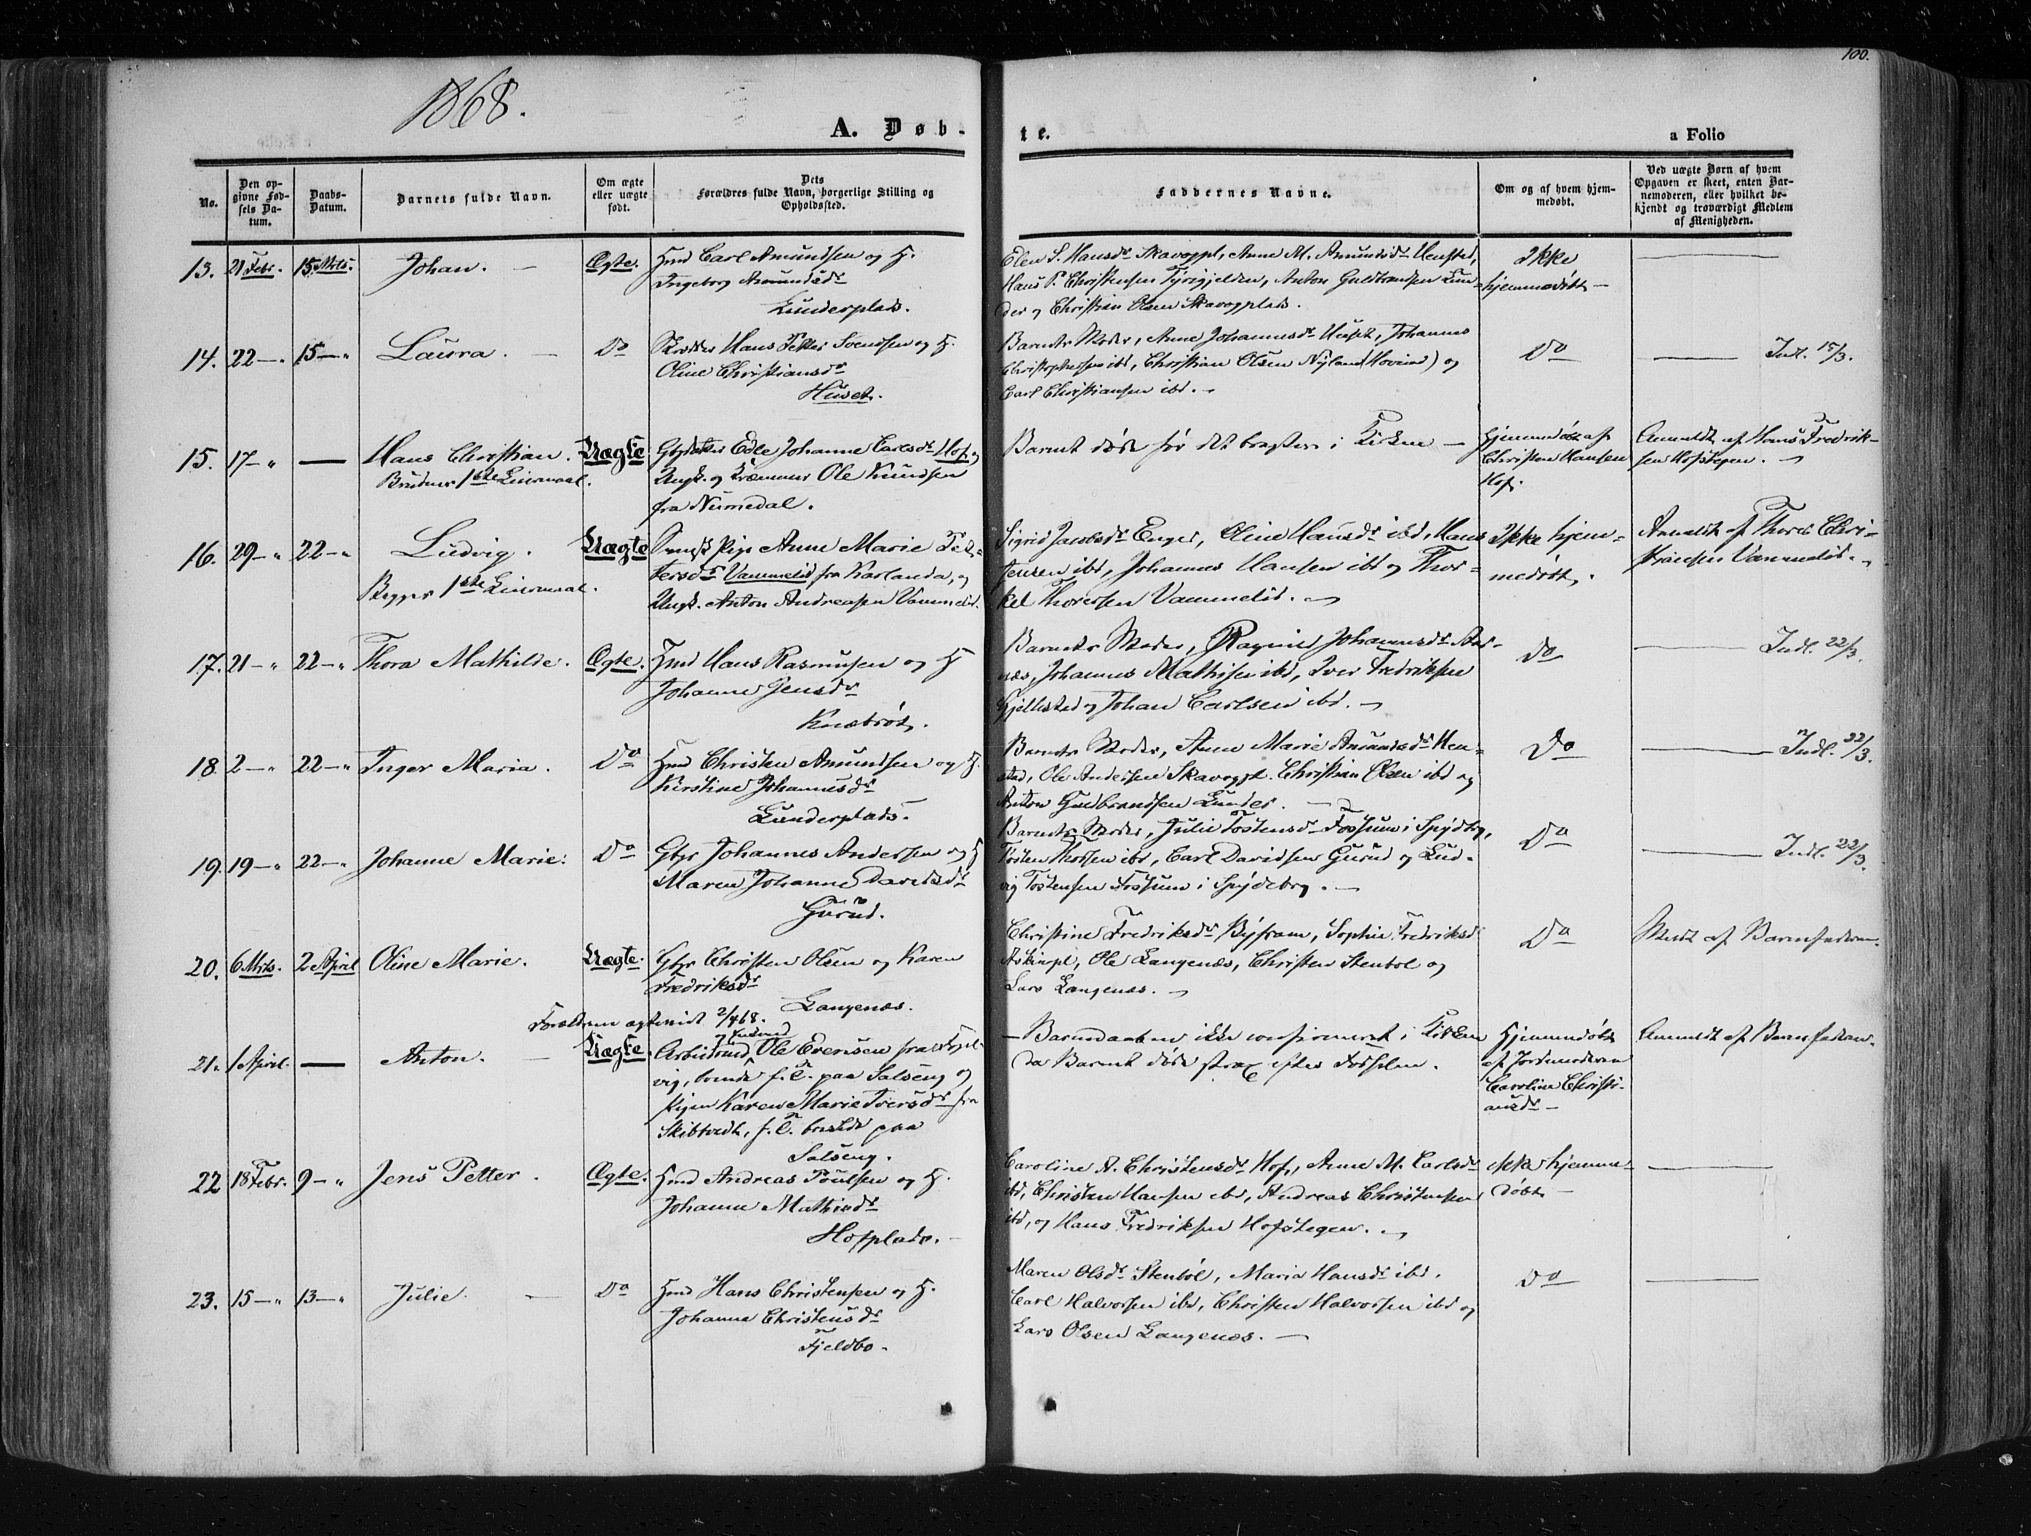 100.
1868.
A. Døb-
te.
a Folio
No.
Den op-
givne Fød-
sels Da-
tum.
Daabs-
Datum.
Barnets fulde Navn.
Om ægte
eller uægte
født.
Dets
Forældres fulde Navn, borgerlige Stilling og
Opholdssted.
Faddernes Navne.
Om og af hvem hjem-
medøbt.
Ved uægte Børn af hvem
Opgaven er skeet, enten Bar-
nemoderen, eller hvilket be-
kjendt og troværdigt Medlem
af Menigheden.
13. 21 Febr. 15 Mrts. Johan. — Ægte.
Hmd Carl Amundsen og H.
Ingeborg Amundsdr
Lunderplads.
Elen S. Hansdr Skavogpl, Anne M. Amundsdr Henstad,
Hans P. Christensen Tyrigjelden, Anton Guldbransen Lun-
der og Christian Olsen Skavogplads.
Ikke
hjemmedøbt —
14. 22 — " 15 — " Laura. — Do
Skrædder Hans Petter Svendsen og H.
Oline Christiansdr
Huset.
Barnets Moder, Anne Johannesdr Huset, Johannes
Christophersen ibd, Christian Olsen Nyland (Hovind) og
Carl Christiansen ibd. —
Do
Indl. 15/3.
15. 17 — " — Hans Christian. Uægte
Brudens 1ste Leiermaal.
Edle Johanne Carlsdr Hof, og
Ungk. og Kræmmer Ole Knudsen
fra Numedal.
Barnet døde før det bragtes i Kirken —
Hjemmedøbt af
Christen Hansen
Hof.
Anmeldt af Hans Fredrik-
sen Hofstegen. —
16. 29 — " 22 — " Ludvig. Uægte
Begges 1ste Leiermaal.
Svensk Pige Anne Marie Pet-
tersdr Vammelid, fra Karlanda, og
Ungk. Anton Andreasen Vammelid.
Sigrid Jacobsdr Enger, Oline Hansdr ibd, Hans
Jensen ibd, Johannes Hansen ibd og Thor-
kel Thoresen Vammelid. —
Ikke hjem-
medøbt.
Anmeldt af Thores Chri-
stiansen Vammelid. —
17. 21 — " 22 — " Thora Mathilde. Ægte.
Hmd Hans Rasmusen og H
Johanne Jensdr
Knabrød.
Barnets Moder, Ragnild Johannesdr Aas-
næs, Johannes Mathisen ibd, Iver Fredriksen
Gjellestad og Johan Carlsen ibd. —
Do
Indl. 22/3.
18. 2 — " 22 — " Inger Maria. Do
Hmd Christen Amundsen og H.
Kirstine Johannesdr
Lunderplads.
Barnets Moder, Anne Marie Amundsdr Hen-
stad, Ole Andersen Skavogpl. Christian Olsen ibd og
Anton Gudbrandsen Lunder. —
Do
Indl. 22/3.
19. 19 — " 22 — " Johanne Marie. Do
Gbr Johannes Andersen og H
Maren Johanne Davidsdr
Gurud.
Barnets Moder, Julie Tostensdr Fossum i Spydbg,
Tosten Thorsen ibd, Carl Davidsen Gurud og Lud-
vig Tostensen Fossum i Spydeberg. —
Do
Indl. 22/3.
20. 6 Mrts. 2 April Oline Marie. Uægte.
Gbr Christen Olsen og Karen
Fredriksdr
Langenæs.
Forældrene ægteviet 2/4 68.
Christine Fredriksdr Byfram, Sophie Fredriksdr
Askimpl, Ole Langenæs, Christen Stenbøl og
Lars Langenæs. —
Do
Meldt af Barnefaderen.
21. 1 April. — Anton. — Uægte.
Arbeidsmd Ole Evensen fra
vig, boende f.T. paa Salseng og
Pigen Karen Marie Iversdr fra
Skibtvedt, f.T. boende paa
Salseng.
— Barnedaaben ikke confirmeret i Kirken
da Barnet døde strax efter Fødselen.
Hjemmedøbt
af Jordemoderen
Caroline Christi-
ansdr —
Anmeldt af Barnefaderen.
22 18 Febr. 9 — " Jens Petter. Ægte.
Hmd Andreas Poulsen og H.
Johanne Mathisdr
Hofplads. —
Caroline A. Christensdr Hof, Anne M. Carlsdr
ibd, Christen Hansen ibd, Andreas Christensen
ibd, og Hans Fredriksen Hofstegen. —
ikke hjemme-
døbt —
23. 15 — " 13 — " Julie. — Do
Hmd Hans Christensen og H.
Johanne Christensdr
Fjeldbo.
Maren Olsdr Stenbøl, Maria Hansdr ibd.
Carl Halvorsen ibd, Christen Halvorsen ibd og
Lars Olsen Langenæs. —
Do